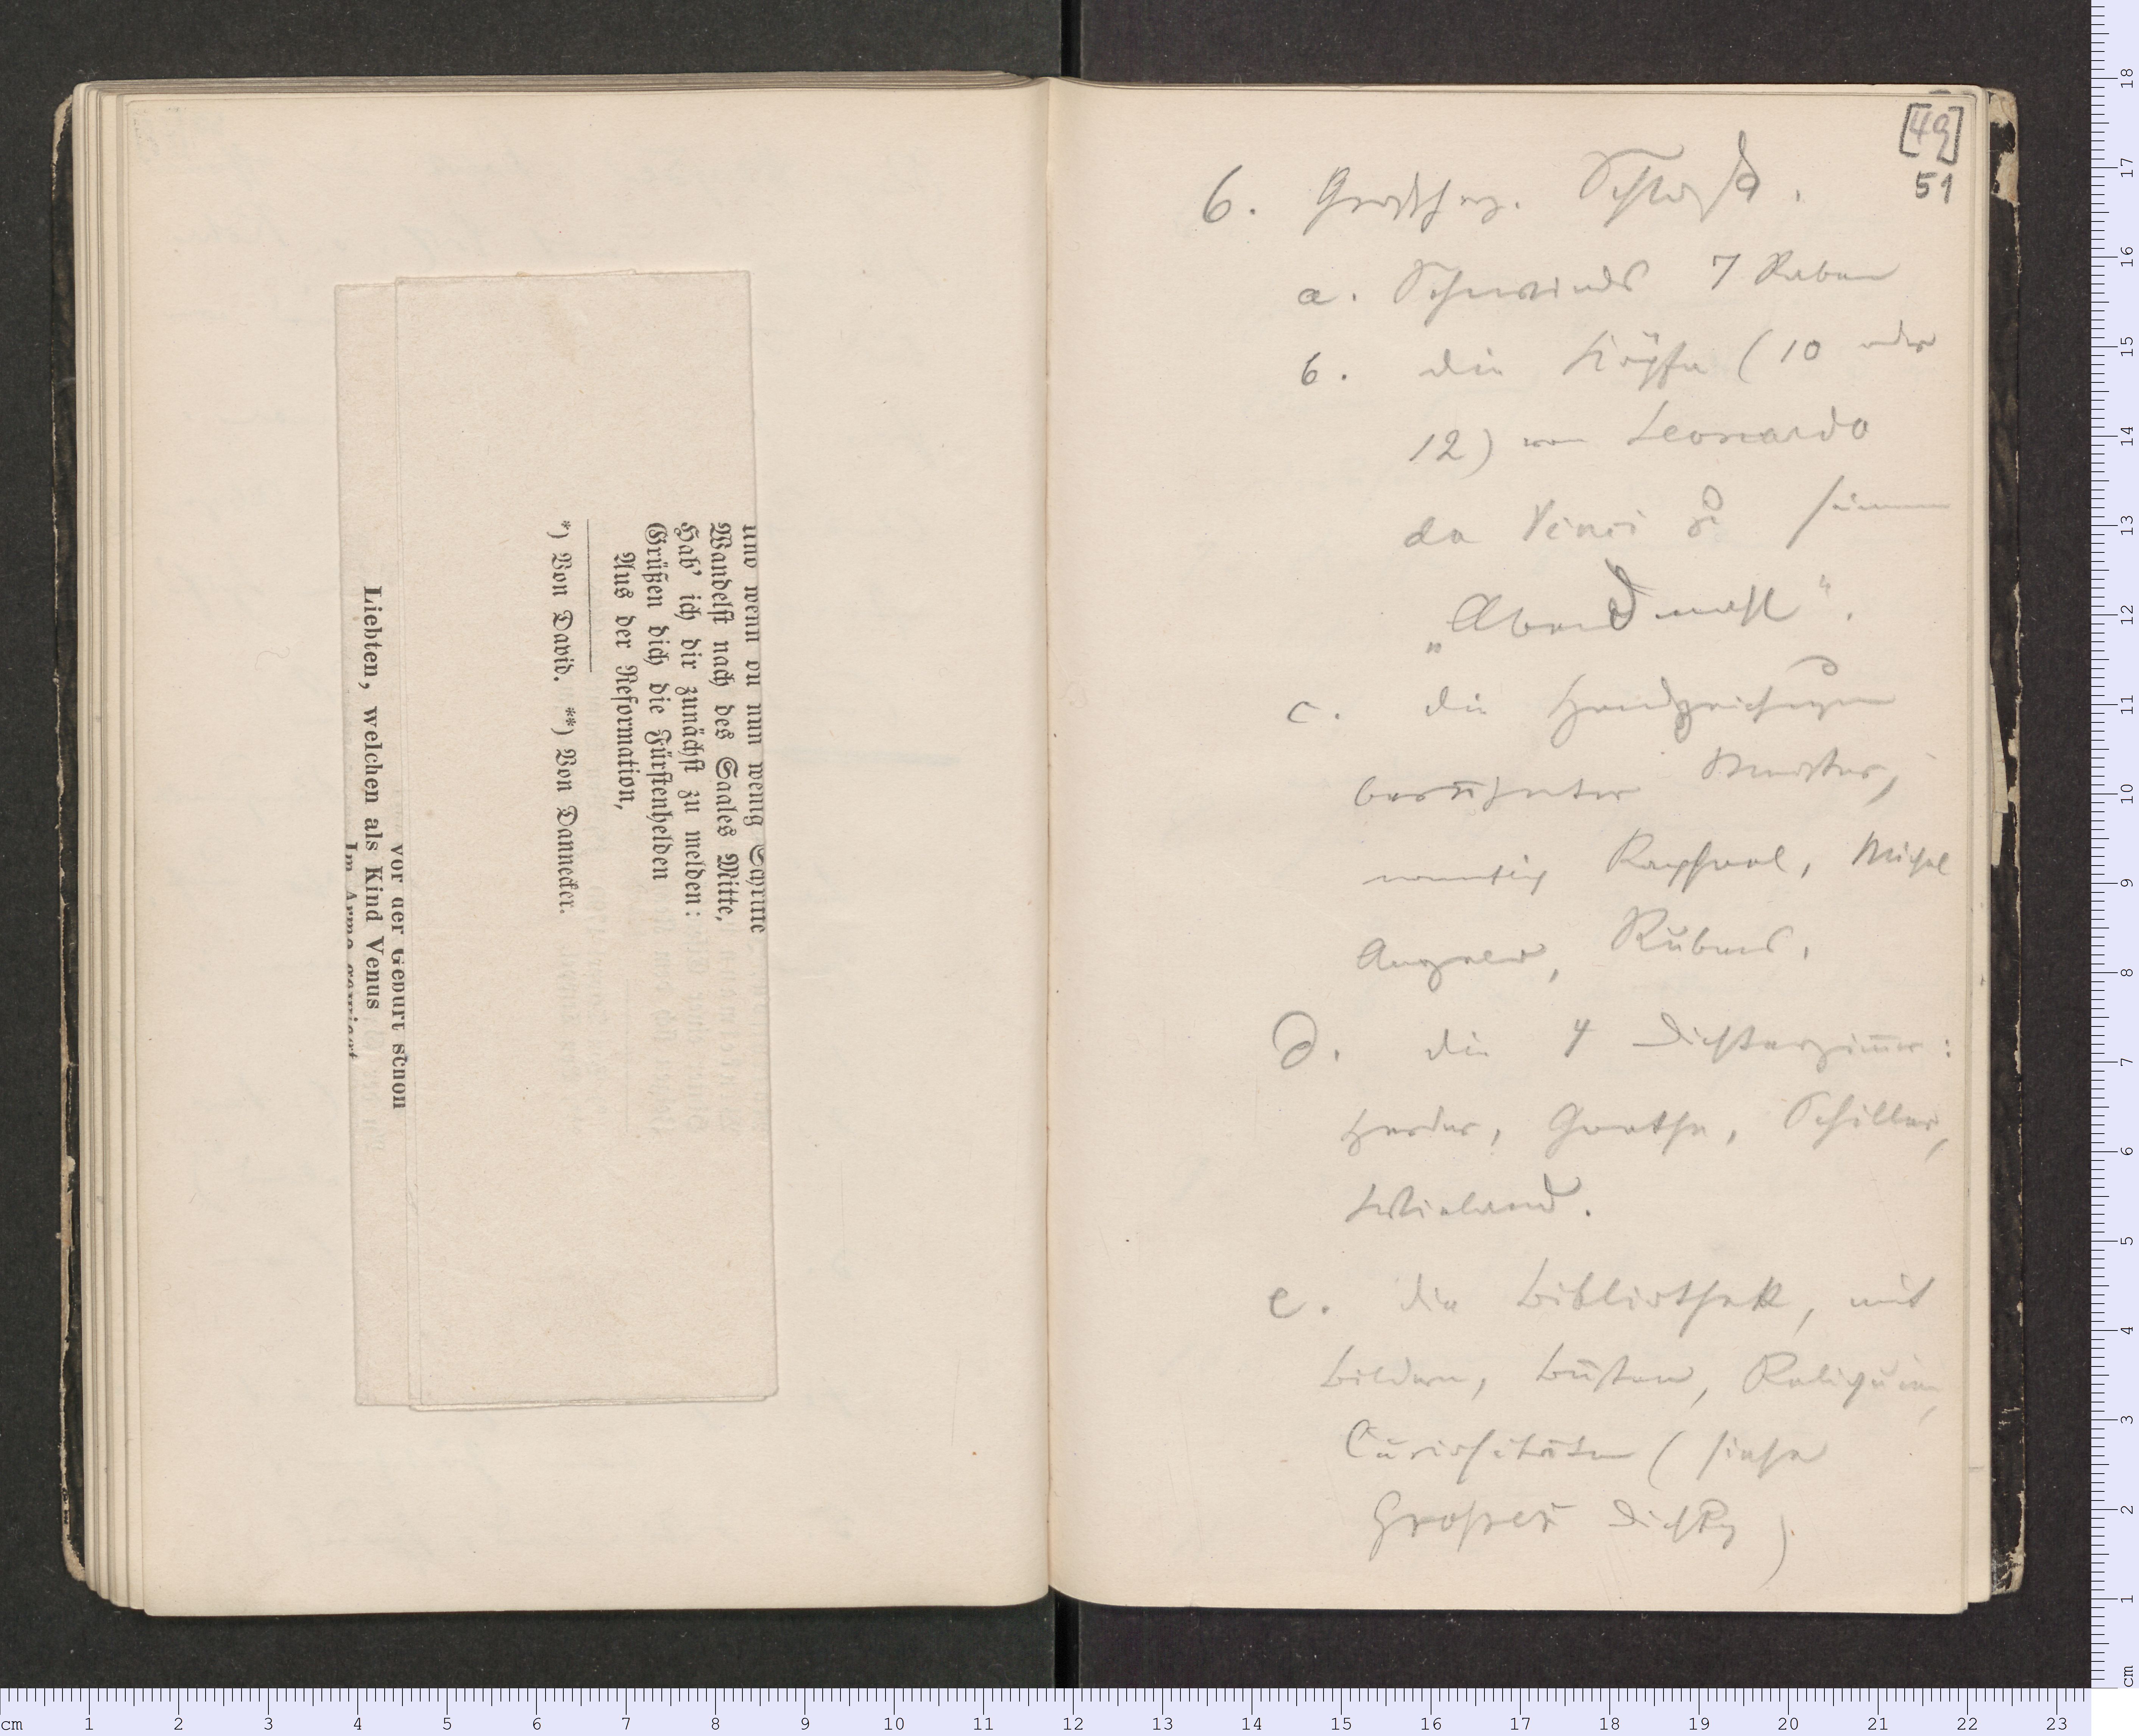 und wenn du nun wenig Schritte
Wandelst nach des Saales Mitte,
Hab' ich dir zunächst zu melden:
Grüßen dich die Fürstenhelden
Aus der Reformation,
*) Von David. **) Von Dannecker.
vor der Geburt schon
Liebten, welchen als Kind Venus
Im Arme gewiegt
[49]
51
6. Großherz. Schloß.
a. Schwinds 7 Raben
b. die Köpfe (10 oder
12) von Leonardo
da Vinci zu seinem
„Abendmahl".
c. die Handzeichngen
berühmter Meister,
namentlich Raphael, Michel
Angelo, Rubens.
d. die 4 Dichterzim̄er:
Herder, Goethe, Schiller,
Wieland.
e. die Bibliothek, mit
Bildern, Büsten, Reliquien,
Curiositäten (siehe
Großes Dichtg)